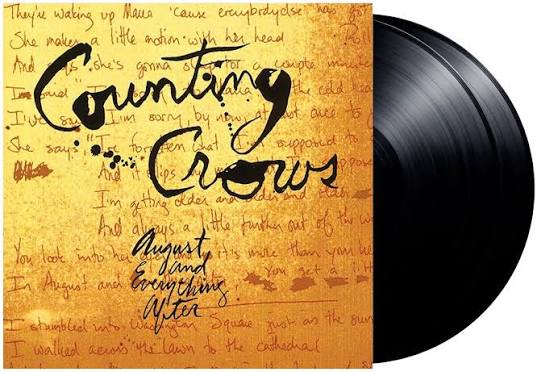 They're waking up Maria 'cause everybodyelse has got
She makes a little motion with her head
And she's gonna a couple minute
Counting
the cold hea
I'm sorry, by now, at to
She says "I've forgotten what I'm supposed to
Crows
And it slips
I'm getting older and older and
And always a little further out of the w
August
and
Everything
After
You look into her it's more than your he
In August and You get a lit
I stumbled into Washington Square just as the sun
I walked across the lawn to the cathedral